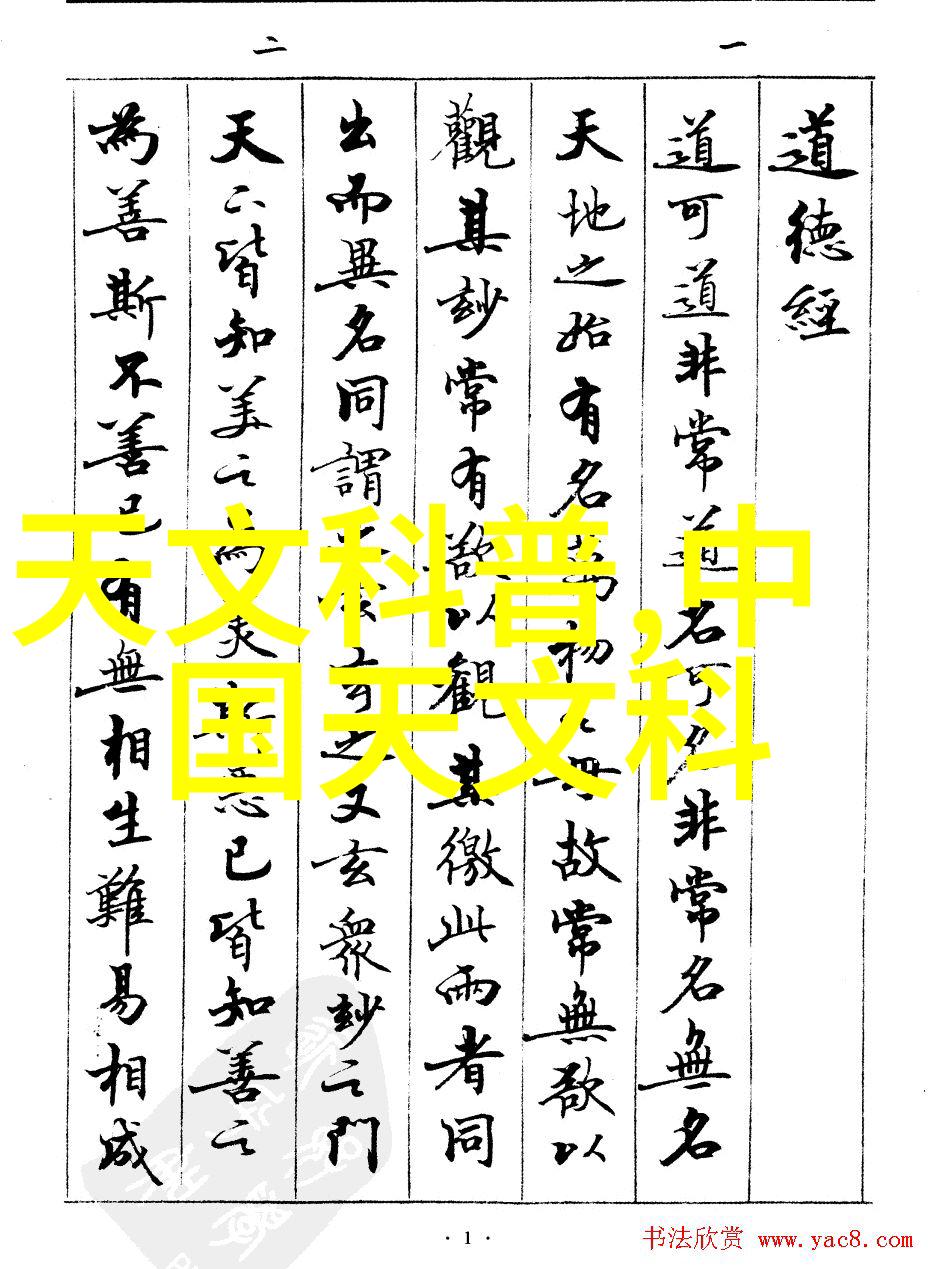 一
二
道德經
道可道非常道名可名非常名無名
天地之始有名萬物之母故常無欲以
觀其玅常有欲以觀其徼此兩者同
出而異名同謂之玄玄之又玄衆玅之門
天下皆知美之為美斯惡已皆知善之
為善斯不善已有無相生難易相成
天文科普,中
国天文科
· 1 ·
书法欣赏 www.yac8.com